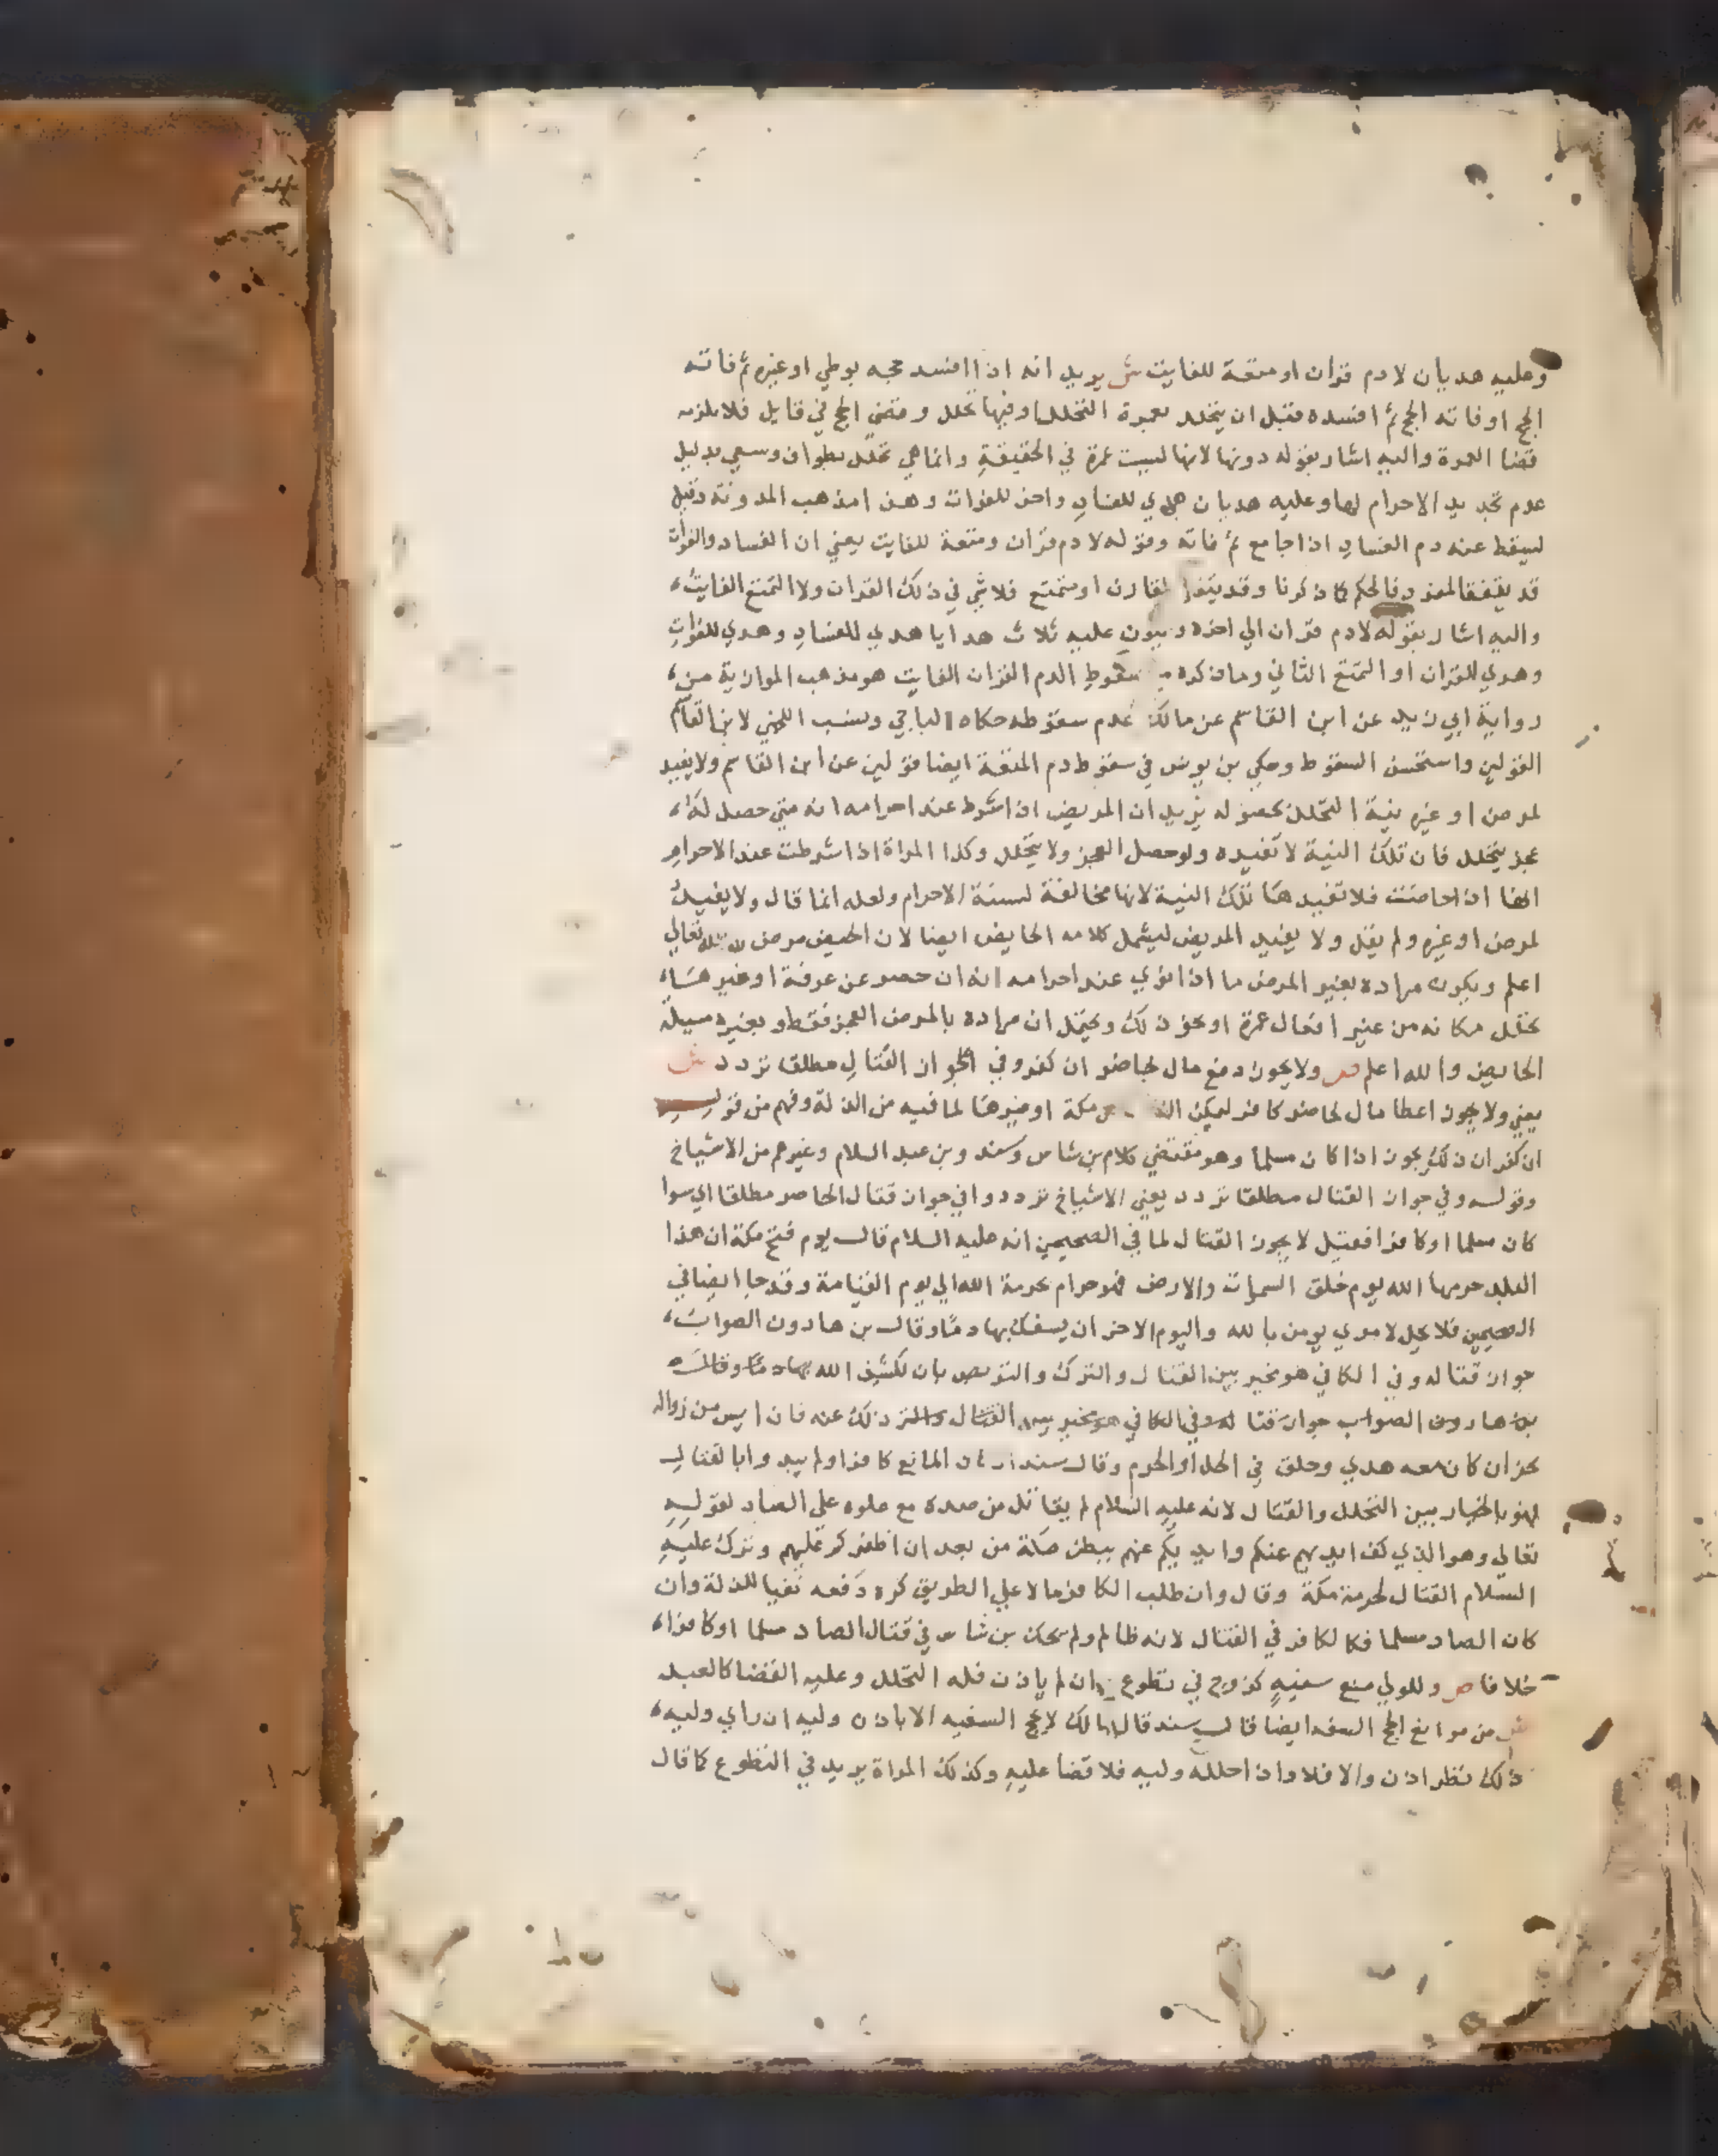 وعليه هديان لا دم قران او متعة للفايت ش يريد انه اذا افسد حجه بوطي او غيره ثم فاته
الحج او فاته الحج ثم افسده قبل ان يتحلل بعمرة التحلل او فيها تحلل وقضي الحج في قابل فلا يلزمه
قضا العمرة واليه اشار بقوله دونها لانها ليست عمرة في الحقيقة وانما هي تحلل بطواف وسعي بدليل
عدم تجديد الاحرام لها وعليه هديان هدي للفساد واخر للفوات وهذا مذهب المدونة وقيل
ليسقط عنه دم الفساد اذا جامع ثم فاته وقوله لا دم قران ومتعة للفايت يعني ان الفساد والفوات
قد يتفقا لمفرد فالحكم كما ذكرنا وقد يتفقا لقارن او متمتع فلا شي في ذلك القران ولا التمتع الفايت
واليه اشار بقوله لا دم قران الي اخره ويكون عليه ثلاث هدايا هدي للفساد وهدي للفوات
وهدي للقران او التمتع الثاني وما ذكره سقوط الدم القران الفايت هو مذهب الموازية من
رواية ابي زيد عن ابن القاسم عن مالك عدم سقوطه حكاه الباجي ونسب اللخمي لابن القاسم
القولين واستحسن السقوط وحكي بن يونس في سقوط دم المتعة ايضا قولين عن ابن القاسم ولا يفيد
لمرض او غيره نية التحلل بحصوله يريد ان المريض اذا اشترط عند احرامه انه متي حصل له
عجز يتحلل فان تلك النية لا تفيده ولو حصل العجز ولا يتحلل وكذا المراة اذا اشترطت عند الاحرام
انها اذا حاضت فلا تفيدها تلك النية لانها مخالفة لسنة الاحرام ولعله انما قال ولا يفيد
لمرض او غيره ولم يقل ولا يفيد المريض ليشمل كلامه الحايض ايضا لان الحيض مرض والله تعالي
اعلم ويكون مراده بغير المرض ما اذا نوي عند احرامه انه ان حصر عن عرفة او غيرها
تحلل مكانه من غير افعال عمرة او نحو ذلك ويحتمل ان مراده بالمرض العجز فقط وبغيره مسيلة
الحايض والله اعلم ص ولا يجوز دفع مال لحاضر ان كفر وفي الجواز القتال مطلقا تردد ش
يعني ولا يجوز اعطا مال لحاضر كافر ليمكن مكة او غيرها لما فيه من الذلة وفهم من قوله
ان كفر ان ذلك يجوز اذا كان مسلما وهو مقتضي كلام بن شاس وسند وبن عبد السلام وغيرهم من الاشياخ
وقوله وفي جواز القتال مطلقا تردد يعني الاشياخ ترددوا في جواز قتال الحاصر مطلقا اي سوا
كان مسلما او كافرا فقيل لا يجوز القتال لما في الصحيحين انه عليه السلام قال يوم فتح مكة ان هذا
البلد حرمها الله يوم خلق السموات والارض فهو حرام بحرمة الله الي يوم القيامة وقد جا ايضا في
الصحيحين فلا يحل لامري يومن بالله واليوم الاخر ان يسفك بها دما وقال بن هارون الصواب
جواز قتاله وفي الكافي هو مخير بين القتال والترك والتربص بان لكشف الله بها دما وقال
بن هارون الصواب جواز قتاله وفي الكافي هو مخير بين القتال والتر ذلك عنه فان ايس من زواله
نحر ان كان معه هدي وحلق في الحل او الحرم وقال سند ان كان المانع كافرا ولم يبدوا بالقتال
فهو بالخيار بين التحلل والقتال لانه عليه السلام لم يقاتل من صده مع علوه علي الصاد لقوله
تعالي وهو الذي كف ايديهم عنكم وايديكم عنهم ببطن مكة من بعد ان اظفركم عليهم وترك عليه
السلام القتال لحرمة مكة وقال وان طلب الكافر مالا علي الطريق كره دفعه نفيا للذلة وان
كان الصاد مسلما فكالكافر في القتال لانه ظالم ولم يحك بن شاس في قتال الصاد مسلما او كافرا
خلافا ص وللولي منع سفيه كزوج في تطوع وان لم ياذن فله التحلل وعليه القضا كالعبد
ش من موانع الحج السفه ايضا قال سند قال مالك لا يحج السفيه الا باذن وليه ان راي وليه
ذلك نظر اذن والا فلا واذا حلله وليه فلا قضا عليه وكذلك المراة يريد في التطوع كما قال